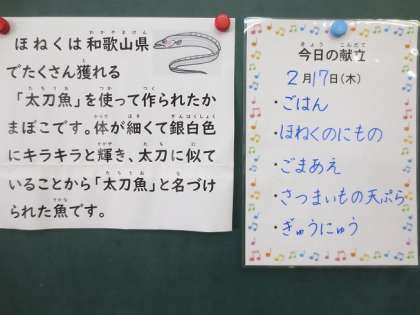 ほねくは和歌山県
でたくさん獲れる
「太刀魚」を使って作られたか
まぼこです。体が細くて銀白色
にキラキラと輝き、太刀に似て
いることから「太刀魚」と名づけ
られた魚です。
今日の献立
2月17日(木)
・ごはん
・ほねくのにもの
・ごまあえ
・さつまいもの天ぷら
・ぎゅうにゅう